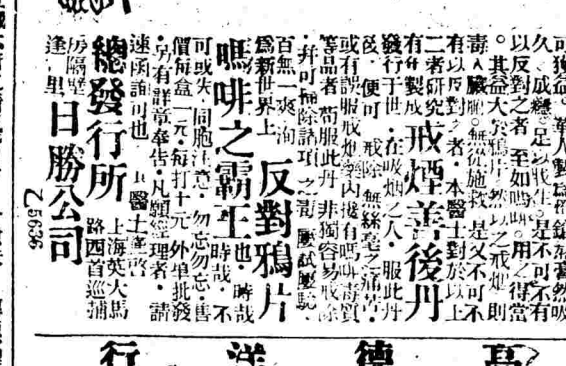 可獲益。華人製為作鎮　然吸
久成癮足以戕生是不可不有
以反對之者 至如嗎啡用之得當
。其益大矣　然以之戒煙則
毒入臟腑無從施救是又不可不
有以反對之者・本醫士對於以上
二者研究
有年製成 戒煙善後丹
發行于世・在吸煙之人・服此丹
後・便可　戒除・無絲毫之痛苦・
或有誤服戒煙藥內攙有嗎啡毒質
等品者・苟服此丹・非獨容易戒除
・并可掃除諸項之毒・屢試屢驗・
百無一爽・洵
為新世界上 反對鴉片
嗎啡之霸王 也・時哉時哉・不
可或失・同胞注意・勿忘勿忘・售
價每盒一元・每打十元・外埠批發
・另有詳章奉告・凡願經理者・請
速函詢可也 醫士謹啓
總發行所 上海英大馬
路西首巡捕
房隔壁
逢 里 日勝公司
Z5696
高 德 洋 行